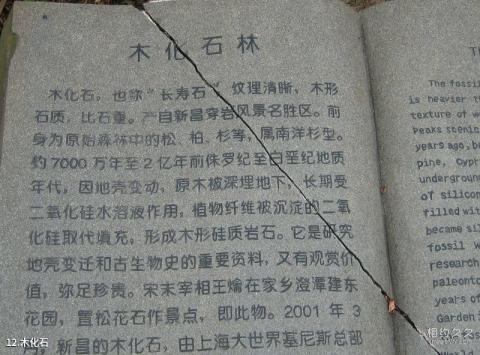 木化石林
木化石，也称"长寿石"，纹理清晰，木形
石质，比石重。产自新昌穿岩风景名胜区。前
身为原始森林中的松、柏、杉等，属南洋杉型。
约7000万年至2亿年前侏罗纪至白垩纪地质
年代，因地壳变动，原木被深埋地下，长期受
二氧化硅水溶液作用，植物纤维被沉淀的二氧
化硅取代填充，形成木形硅质岩石。它是研究
地壳变迁和古生物史的重要资料，又有观赏价
值，弥足珍贵。宋末宰相王爚在家乡澄潭建东
花园，置松花石作景点，即此物。2001年3
新昌的木化石，由上海大世界基尼斯总部
The fossil
is heavier th
texture of w
Peaks scenic
years ago, be
pine, Cypr
underground
of silicon
filled wit
became sil
fossil w
research
paleonto
years of
Garden i
World
12 木化石